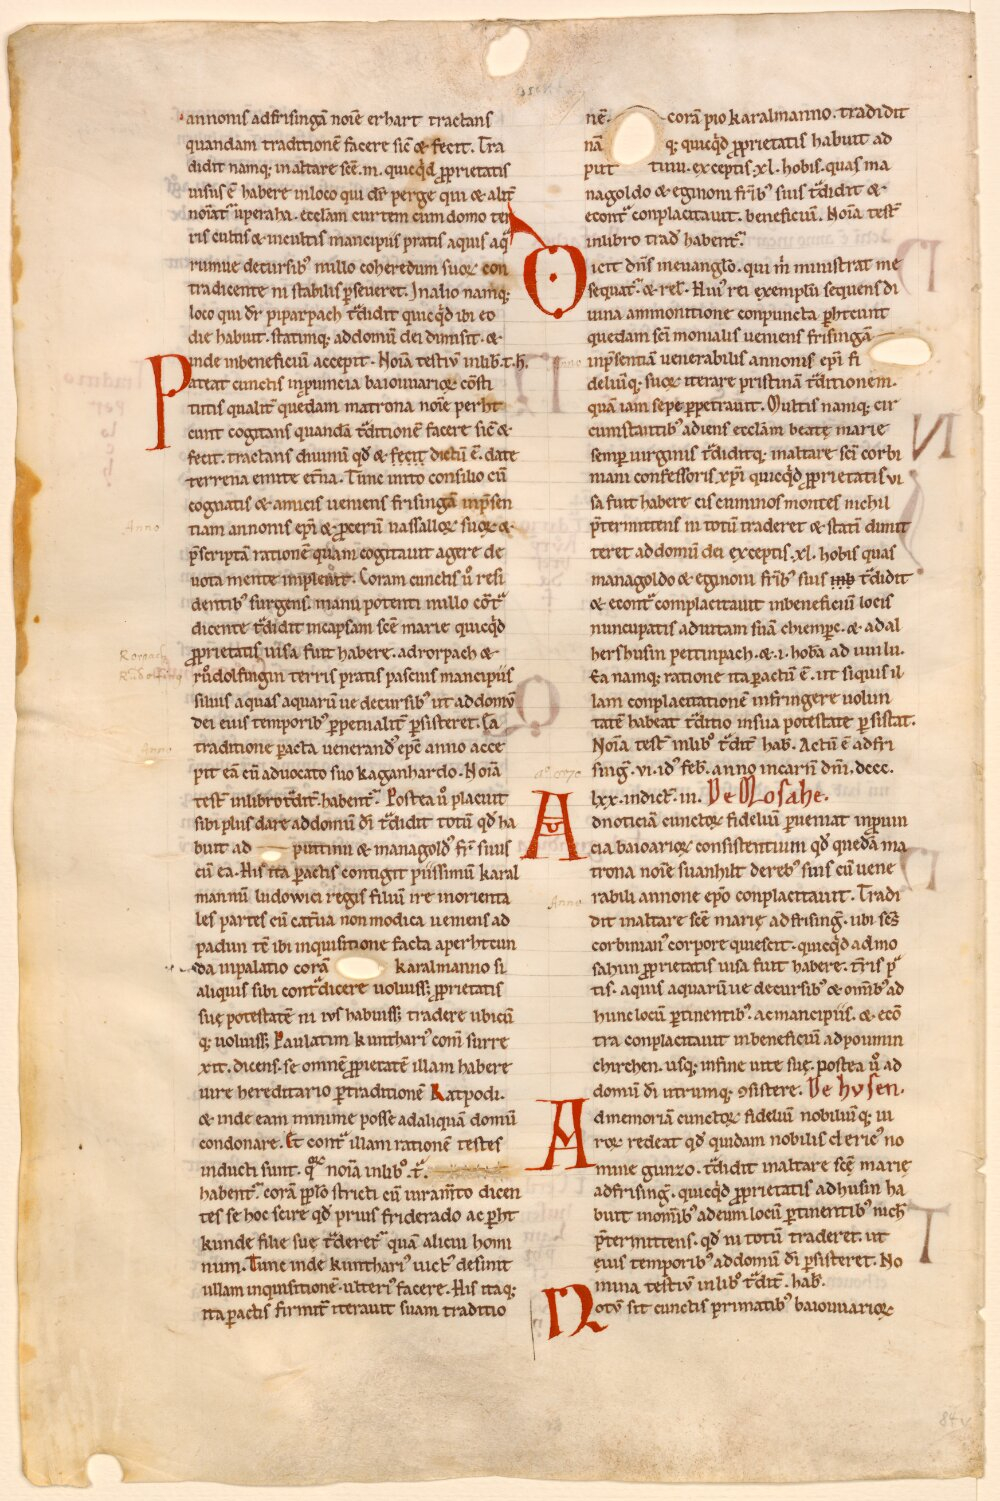 annonis adfrisingā noīe erhart tractans
quandam traditionē facere sic̄ & fecit. Tra
didit namq; inaltare scē.m. quicq̇d ꝓprietatis
uisus ē habere inloco qui dr̄ perge qui & alit̄
noīat᷑ uꝑeraha. eccłam curtem cum domo ter
ris cultis & incultis mancipiis pratis aquis aq
rumue decursib; nullo coheredum suoꝝ con
tradicente ni stabilis ꝑseueret. Inalio namq;
loco qui dr̄ piparpach t̄didit quicq̇d ibi eo
die habuit. statimq; addomū dei dimisit. &
inde inbeneficiū accepit. Noīa testiū inlib.t.h.
Pateat cunctis inpuincia baiouuarioꝝ cōsti
tutis qualit̄ quedam matrona noīe perht
cunt cogitans quandā t̄ditionē facere sic̄ &
fecit. tractans diuinū qd̄ & fecit dictū ē. date
terrena emite et̄na. Tunc inito consilio cū
cognatis & amicis ueniens frisingā inp̄sen
tiam annonis ep̄i & ꝓcerū uassalloꝝ suoꝝ &
p̄scriptā rationē quam cogitauit agere de
uota mente impleuit. Coram cunctis ū resi
dentib; surgens. manu potenti nullo cōt᷑
dicente t̄didit incapsam scē marie quicq̇d
ꝓprietatis uisa fuit habere. adrorpach &
růdolfingin terris pratis pascuis mancipiis
siluis aquas aquarū ue decursib; ut addomū
dei eius temporib; ꝑpetualit̄ ꝑsisteret. Ea
traditione ꝑacta uenerand; epc̄ anno acce
pit eā cū aduocato suo kaganhardo. Noīa
test̄ inlibro t̄dit̄. habent᷑. Postea ū placuit
sibi plus dare addomū dī t̄didit totū qd̄ ha
buit ad puttinu & managold; fr̄ suus
cū ea. His ita ꝑactis contigit piissimū karal
mannū ludouuici regis filiū ire morienta
les partes cū cat̄ua non modica ueniens ad
padun tē ibi inquisitione facta aperhtcun
da inpalatio corā karalmanno si
aliquis sibi cont᷑dicere uoluiss; ꝓprietatis
suę potestatē ni ius habuiss; tradere ubicū
q; uoluiss; Paulatim kunthari; com̄ surre
xit. dicens. se omnē ꝓprietatē illam habere
iure hereditario ꝑtraditionē Ratpodi.
& inde eam minime posse adaliquā domū
condonare. Et cont᷑ illam rationē testes
inducti sunt. qꝝ noīa inlib;. t᷑.
habent᷑. corā pp̄lo stricti cū iuram̄to dicen
tes se hoc scire qd̄ prius friderado ac ꝑht
kunde filie sue t̄deret᷑ quā alicui homi
num. Tunc inde kunthari; uict; desinit
ullam inquisitionē ulteri; facere. His itaq;
ita ꝑactis firmit̄ iterauit suam traditio
nē. corā pio karalmanno. tradidit
nā q; quicq̇d ꝓprietatis habuit ad
put tinu. exceptis .xl. hobis. quas ma
nagoldo & eginoni fr̄ib; suis t̄didit &
econt᷑ conplacitauit. beneficiū. Noīa test̄
inlibro trad̄ habent᷑.
Dicit dn̄s ineuanglo. qui m̄ ministrat me
sequat᷑. & reł. Hui; rei exemplū sequens di
uina ammonitione conpuncta ꝑhtcunt
quedam scī monialis ueniens frisingā
inp̄sentiā uenerabilis annonis ep̄i fi
deliūq; suoꝝ iterare pristinā t̄ditionem.
quā iam sepe ꝑpetrauit. Multis namq; cir
cumstantib; adiens ecclam beatę marie
semꝑ uirginis t̄diditq; inaltare scī corbi
niani confessoris xp̄i quicq̇d ꝓprietatis ui
sa fuit habere cis cuminos montes nichil
p̄termittens ni totū traderet & statī dimit
teret addomū dei exceptis .xl. hobis quas
managoldo & eginoni fr̄ib; suis inb t̄didit
& econt᷑ complacitauit inbeneficiū locis
nuncupatis aduitam suā chiempc̄. & adal
hershusin pettinpach. &. i. hobā ad uuilu.
Ea namq; ratione ita ꝑactū ē. ut siquis il
lam conplacitationē infringere uolun
tatē habeat t̄ditio insua potestate ꝑsistat.
Noīa test̄ inlib; t̄dit̄ hab̄. Actū ē adfri
sing̃. vi. id; feb̄. anno incarn̄ dn̄i. dccc.
lxx. indict̄. iii. De Mosahe.
Adnoticiā cunctoꝝ fidelium ꝑueniat inpuin
cia baioarioꝝ consistentium qd̄ quedā ma
trona noīe suanhilt dereb; suis cū uene
rabili annone ep̄o conplacitauit. Tradi
dit inaltare scē marię adfrising̃. ubi scs̄
corbinian; corpore quiescit. quicq̇d admo
sahun ꝓprietatis uisa fuit habere. t̄ris p᷑
tis. aquis aquarū ue decursib; & om̄ib; ad
hunc locū ꝑtinentib;. ac mancipiis. & ecō
tra conplacitauit inbeneficiū adpoumin
chirchen. usq; infine uite suę. postea ū ad
domū dī utrumq; ꝯsistere. De husen.
Admemoriā cunctoꝝ fideliū nobiliūq; ui
roꝝ redeat qd̄ quidam nobilis cleric; no
mine gunzo. t̄didit inaltare scē marię
adfrising̃. quicq̇d ꝓprietatis adhusin ha
buit inom̄ib; adeum locū ꝑtinentib; nich̄
p̄termittens. qd̄ ni totū traderet. ut
eius temporib; addomū dī ꝑsisteret. No
mina testiū inlib; t̄dit̄. hab̄.
Notū sit cunctis primatib; baiouuarioꝝ
Anno
Rorpach
Růdolfing
Anno
Anno
aº. 0870
Anno
84v